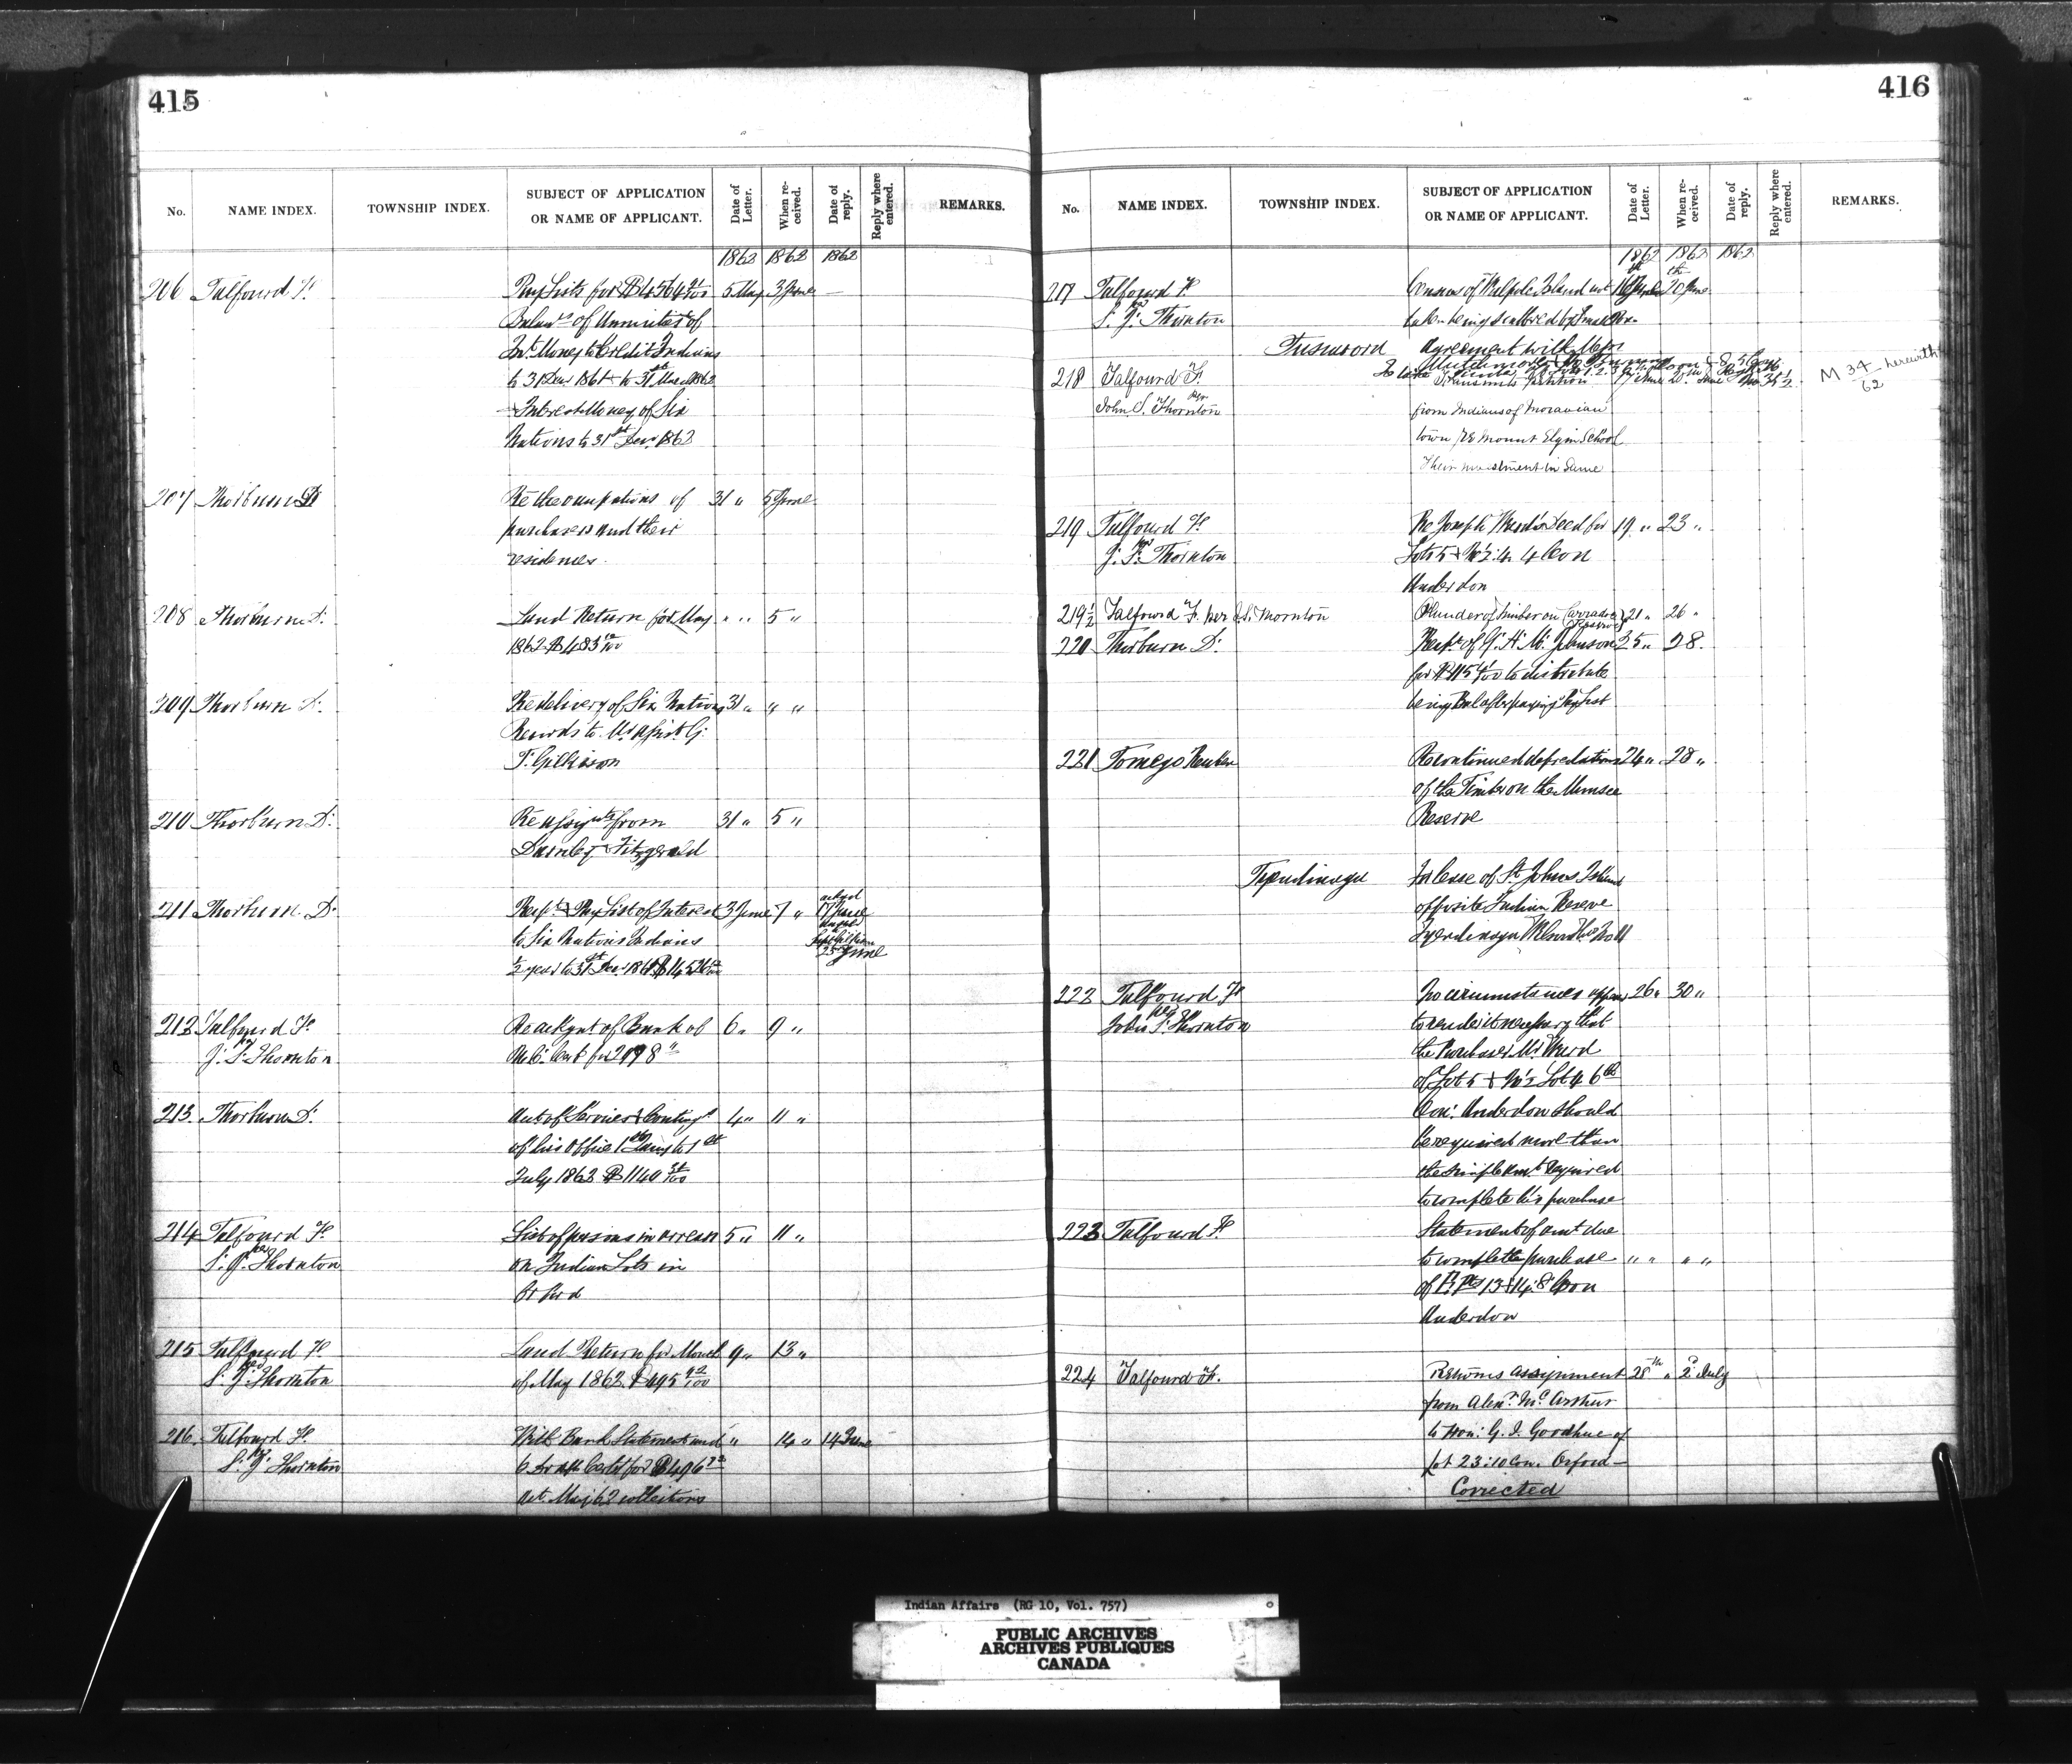 415
No. NAME INDEX. TOWNSHIP INDEX. SUBJECT OF APPLICATION OR NAME OF APPLICANT. Date of Letter. When received. Date of reply. Reply where entered. REMARKS.
1862 1862 1862
206 Talfourd F. Pay Lists for $4564 5 May 3 June —
of Annuities of
Int. Money to Credit Indians
to 31 Decr 1861 to 31st March 1862
Interest Money of Six
Nations to 31st Decr 1862
207 Thorburn D. Re the occupations of 31 " 5 June
purchasers and their
residences.
208 Thorburn D. Land Return for May " " 5 "
1862 $483
209 Thorburn D. Re delivery of Six Nations 31 " " "
Records to Mr
J. Gilkison
210 Thorburn D. Re from 31 " 5 "
Darnley & Fitzgerald
211 Thorburn D. & Pay List of Interest 3 June 7 " 17 June
to Six Nations Indians
June
½ year to 31st Decr
212 Talfourd F. Re of Bank of 6 " 9 "
per
J. S. Thornton
213. Thorburn D. Acct of Services & Conting 4 " 11 "
of his Office 1st to 1st
July 1862 $1140
214 Talfourd F. List of persons in arrears 5 " 11 "
per
S. J. Thornton on Indian Lots in
Orford
215 Talfourd F. Land Return for Month 9 " 13 "
per
S. J. Thornton of May 1862 $495
216. Talfourd F. With Bank Statement and " 14 " 14 June
per
S. J. Thornton 6 Certs for $496
May 62 collections
416
No. NAME INDEX. TOWNSHIP INDEX. SUBJECT OF APPLICATION OR NAME OF APPLICANT. Date of Letter. When received. Date of reply. Reply where entered. REMARKS.
1862 1862 1862
217 Talfourd F. Census of Walpole Island not 20th June
per
S. J. Thornton taken being scattered by Small Pox
Tuscarora Agreement with Messrs
218 Talfourd F. Transmits petition 17 June
M 34 herewith
62
per
John S. Thornton from Indians of Moravian
town re Mount Elgin School
Their investment in Same
219 Talfourd F. Re Joseph Ward's Deed for 19 " 23 "
per
J. S. Thornton Lots 5 & 4 Con
Anderdon
219½ Talfourd F. per J.S. Thornton Plunder of timber on Caradoc Reserve 21 " 26 "
220 Thorburn D. of G. H. M. Johnson 25 " 28.
for $ to distribute
being Bal after paying Pay List
221 Tomego Reuben Re continued depredations 24 " 28 "
of the Timber on the Munsee
Reserve
Tyendinaga Lease of St Johns Island
opposite Indian Reserve
Tyendinaga
222 Talfourd F. No circumstances appear 26 " 30 "
per
John S. Thornton to render it necessary that
the Purchaser Mr Ward
of Lot 5 & Lot 4 6th
Con. Anderdon should
be required more than
the simple amt required
to complete his purchase
223 Talfourd F. Statement of amt due
to complete purchase " " " "
of 13 & 14. 8 Con
Anderdon
224 Talfourd F. Returns assignment 28th " 2d July
from Alexr McArthur
to Hon: G. J. Goodhue of
Lot 23: 10 Con. Orford —
Corrected
Indian Affairs (RG 10, Vol. 757)
PUBLIC ARCHIVES
ARCHIVES PUBLIQUES
CANADA